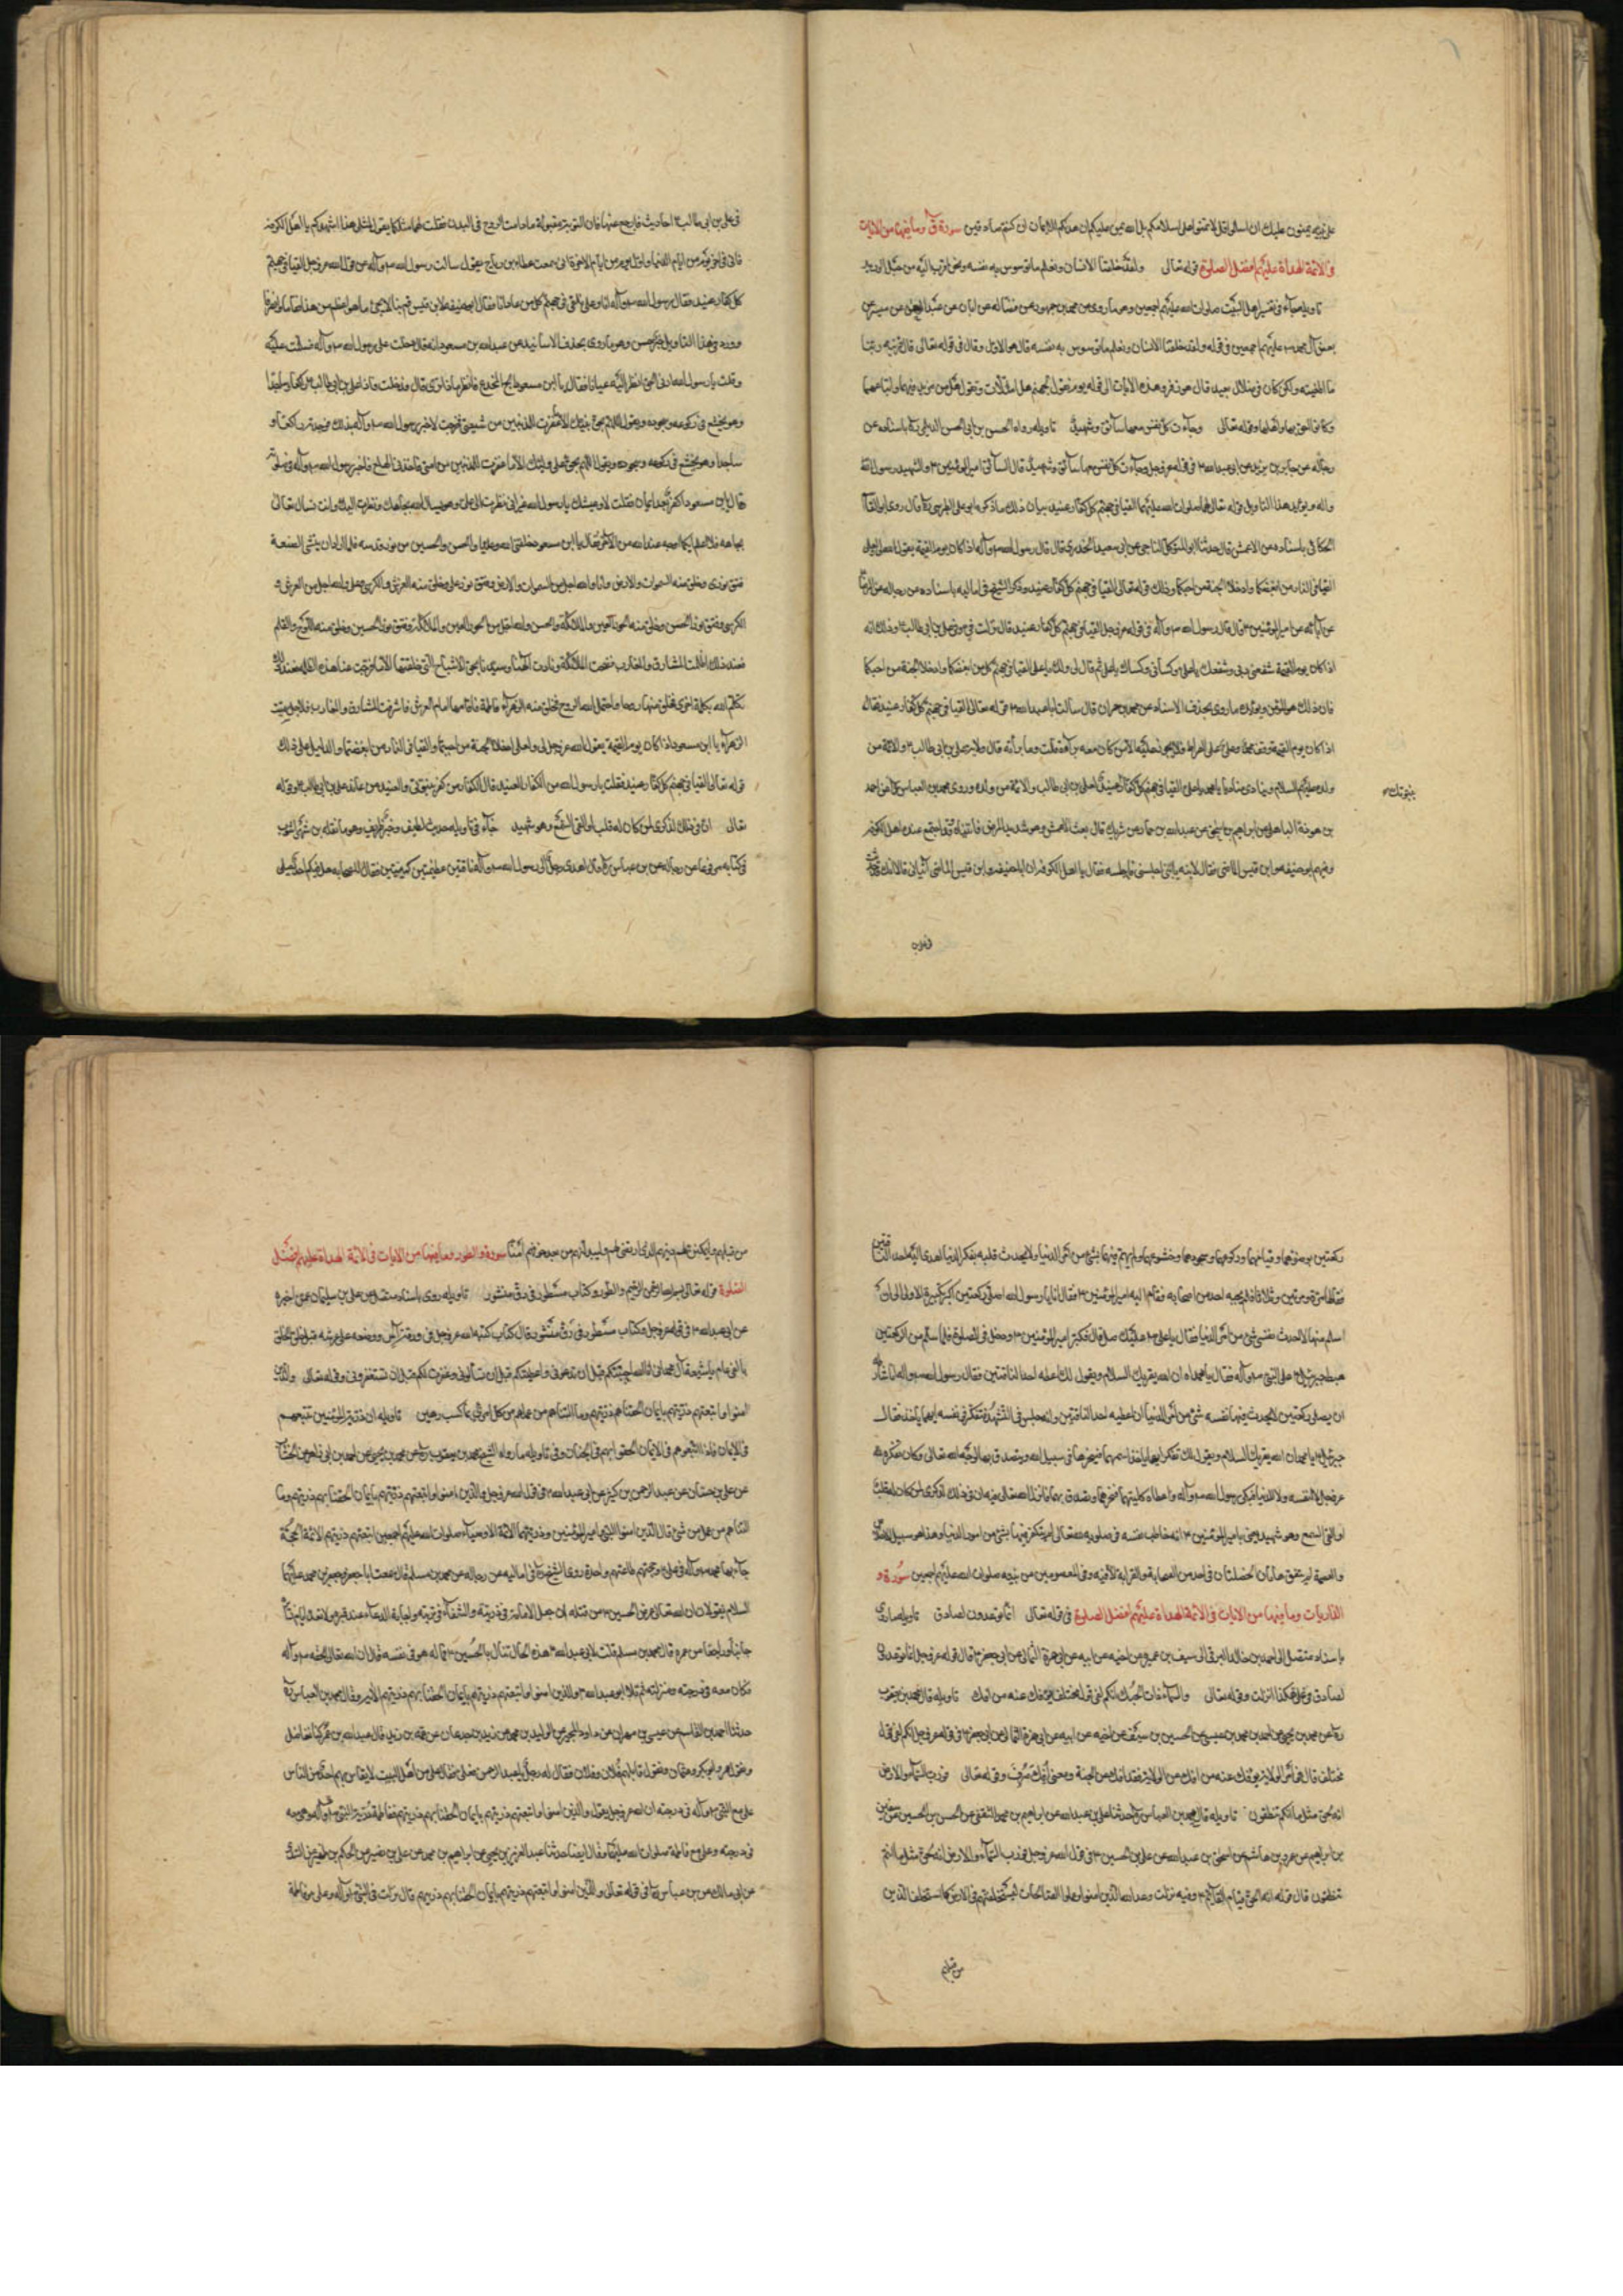 على نبيه يمنون عليك ان اسلموا قل لا تمنوا على اسلامكم بل الله يمن عليكم ان هديكم للايمان ان كنتم صادقين سورة ق وما فيها من الايات
في الائمة الهداة عليهم افضل الصلوة قوله تعالى ولقد خلقنا الانسان ونعلم ما توسوس به نفسه ونحن اقرب اليه من حبل الوريد
تاويله جاء في تفسير اهل البيت صلوات الله عليهم اجمعين وهو ما روى عن محمد بن جمهور عن فضالة عن ابان عن عبد الرحمن عن ميسر عن
بعض آل محمد عليهم اجمعين في قوله ولقد خلقنا الانسان ونعلم ما توسوس به نفسه قال هو الاول وقال في قوله تعالى قال قرينه ربنا
ما اطغيته ولكن كان في ضلال بعيد قال هو زفر وهذه الايات الى قوله يوم نقول لجهنم هل امتلأت وتقول هل من مزيد فيهما
وكانوا احق بها واهلها وقوله تعالى وجاءت كل نفس معها سائق وشهيد تاويله رواه الحسن بن ابي الحسن الديلمي باسناده عن
رجاله عن جابر بن يزيد عن ابي عبد الله ع في قوله عز وجل وجاءت كل نفس معها سائق وشهيد قال السائق امير المؤمنين ع والشهيد رسول الله
واله ويؤيد هذا التاويل قوله تعالى لهما صلوات الله عليهما القيا في جهنم كل كفار عنيد بيان ذلك ما ذكره ابو علي الطبرسي قال روى ابو القاسم
الحسكاني باسناده عن الاعمش قال حدثنا ابو المتوكل الناجي عن ابي سعيد الخدري قال قال رسول الله ص وآله اذا كان يوم القيمة يقول الله لي ولعلي
القيا في النار من ابغضكما وادخلا الجنة من احبكما وذلك قوله تعالى القيا في جهنم كل كفار عنيد وذكر الشيخ في اماليه باسناده عن رجاله عن الرضا
عن آبائه عن امير المؤمنين ع قال قال رسول الله ص وآله في قوله عز وجل القيا في جهنم كل كفار عنيد قال نزلت في وفي علي بن ابي طالب ع وذلك انه
اذا كان يوم القيمة شفعني ربي وشفعك يا علي وكساني وكساك يا علي ثم قال لي ولك يا علي القيا في جهنم كل من ابغضكما وادخلا الجنة من احبكما
فان ذلك هو المؤمن ويؤيده ما روى بحذف الاسناد عن محمد بن حمران قال سالت ابا عبد الله ع عن قوله تعالى القيا في جهنم كل كفار عنيد فقال
اذا كان يوم القيمة وقف محمد وعلي على الصراط فلا يجوز عليه الا من كان معه براءة قلت وما براءة قال ولاية علي بن ابي طالب ع والائمة من
ولده عليهم السلام وينادي مناد يا محمد يا علي القيا في جهنم كل كفار عنيد لعلي بن ابي طالب والائمة من ولده وروى محمد بن العباس عن احمد
بنبوتك
بن هوذة الباهلي عن ابراهيم بن اسحق عن عبد الله بن حماد عن شريك قال بعث الاعمش وهو شديد المرض فاتيناه وقد اجتمع عنده اهل الكوفة
وفيهم ابو حنيفة وابن قيس الماضي فقال لابنه يا بني اجلسني فاجلسه فقال يا اهل الكوفة ان ابا حنيفة وابن قيس الماضي اتياني فقالا انك قد حدثت
في علي بن
في علي بن ابي طالب ع احاديث فارجع عنها فان التوبة مقبولة ما دامت الروح في البدن فقلت لهما مثلكما يقول لمثلي هذا اشهدكم يا اهل الكوفة
فاني في اخر يوم من ايام الدنيا واول يوم من ايام الاخرة اني سمعت عطاء بن رباح يقول سالت رسول الله ص وآله عن قول الله عز وجل القيا في جهنم
كل كفار عنيد فقال رسول الله ص وآله انا وعلي نلقي في جهنم كل من عادانا فقال ابو حنيفة لابن قيس قم بنا لا يجيء ما هو اعظم من هذا فقاما وانصرفا
وورد في هذا التاويل خبر حسن وهو ما روى بحذف الاسانيد عن عبد الله بن مسعود انه قال دخلت على رسول الله ص وآله فسلمت عليه
وقلت يا رسول الله ارني الحق انظر اليه عيانا فقال يا ابن مسعود لج المخدع فانظر ماذا ترى قال فدخلت فاذا علي بن ابي طالب ع راكعا وساجدا
وهو يخشع في ركوعه وسجوده ويقول اللهم بحق نبيك الا غفرت للمذنبين من شيعتي فخرجت لاخبر رسول الله ص وآله بذلك فوجدته راكعا و
ساجدا وهو يخشع في ركوعه وسجوده ويقول اللهم بحق علي وليك الا ما غفرت للمذنبين من امتي فاخذني الهلع
قال يا ابن مسعود اكفر بعد ايمان فقلت لا وعيشك يا رسول الله غير اني نظرت الى علي وهو يسال الله بجاهك ونظرت اليك وانت تسال الله تعالى
بجاهه فلا اعلم ايكما اوجه عند الله من الاخر فقال يا ابن مسعود خلقني الله وعليا والحسن والحسين من نور قدسه فلما اراد ان ينشئ الصنعة
فتق نوري وخلق منه السموات والارض وانا والله اجل من السموات والارض وفتق نور علي وخلق منه العرش والكرسي وعلي والله اجل من العرش و
الكرسي وفتق نور الحسن وخلق منه الحور العين والملائكة والحسن والله اجل من الحور العين والملائكة وفتق نور الحسين وخلق منه اللوح والقلم
فعند ذلك اظلمت المشارق والمغارب فضجت الملائكة ونادت الهنا وسيدنا بحق الاشباح التي خلقتها الا ما فرجت عنا هذه الظلمة فعند ذلك
تكلم الله بكلمة اخرى فخلق منها روحا فاحتمل النور الروح فخلق منه الزهراء فاطمة فاقامها امام العرش فاشرقت المشارق والمغارب فلاجل ذلك سميت
الزهراء يا ابن مسعود اذا كان يوم القيمة يقول الله عز وجل لي ولعلي ادخلا الجنة من احببتما والقيا في النار من ابغضتما والدليل على ذلك
قوله تعالى القيا في جهنم كل كفار عنيد فقلت يا رسول الله من الكفار العنيد قال الكفار من كفر بنبوتي والعنيد من عاند علي بن ابي طالب ع وقوله
تعالى ان في ذلك لذكرى لمن كان له قلب او القى السمع وهو شهيد جاء في تاويله حديث لطيف وخبر طريف وهو ما نقله بن شهراشوب
في كتابه مرفوعا عن رجاله عن بن عباس قال اهدى رجل الى رسول الله ص وآله ناقتين عظيمتين كريمتين فقال للصحابه هل فيكم احد يصلي
ركعتين بوضوئهما وقيامهما وركوعهما وسجودهما وخشوعهما ولم يهتم فيهما بشيء من امر الدنيا ولا يحدث قلبه بفكر الدنيا اهدي اليه احدى الناقتين
فقالها مرة ومرتين وثلاثا فلم يجبه احد من اصحابه فقام اليه امير المؤمنين ع فقال انا يا رسول الله اصلي ركعتين اكبر تكبيرة الاولى الى ان
اسلم منها لا احدث نفسي بشيء من امر الدنيا فقال يا علي صل صلى الله عليك قال فكبر امير المؤمنين ع ودخل في الصلوة فلما سلم من الركعتين
هبط جبرئيل على النبي ص وآله فقال يا محمد ان الله يقرئك السلام ويقول لك اعطه احدى الناقتين فقال رسول الله ص وآله انا شارطته
ان يصلي ركعتين لا يحدث فيهما نفسه بشيء من امر الدنيا ان اعطيه احدى الناقتين وانه جلس في التشهد فتفكر في نفسه ايهما ياخذ فقال
جبرئيل يا محمد ان الله يقرئك السلام ويقول لك تفكر ايهما ياخذ اسمنهما فينحرها في سبيل الله ويتصدق بها لوجه الله تعالى وكان تفكره لله
عز وجل لا لنفسه ولا للدنيا فبكى رسول الله ص وآله واعطاه كليتهما فنحرهما وتصدق بهما فانزل الله تعالى فيه ان في ذلك لذكرى لمن كان له قلب
او القى السمع وهو شهيد يعني به امير المؤمنين ع انه خاطب نفسه في صلوته لله تعالى لم يتفكر فيهما بشيء من امور الدنيا
والعصمة لم يتفق هاتان الخصلتان في احد من الصحابة والقرابة الا فيه وفي المعصومين من بنيه صلوات الله عليهم اجمعين سورة و
الذاريات وما فيها من الايات في الائمة الهداة عليهم افضل الصلوة في قوله تعالى انما توعدون لصادق تاويله
باسناده متصل الى احمد بن خالد البرقي الى سيف بن عميرة عن اخيه عن ابيه عن ابي حمزة الثمالي عن ابي جعفر ع قال قوله عز وجل انما توعدون
لصادق في علي هكذا انزلت وقوله تعالى والسماء ذات الحبك انكم لفي قول مختلف يؤفك عنه من افك تاويله قال محمد بن يعقوب
ره عن محمد بن يحيى عن احمد بن محمد بن عيسى عن الحسين بن سيف عن اخيه عن ابيه عن ابي حمزة الثمالي عن ابي جعفر ع في قوله عز وجل انكم لفي قول
مختلف قال في امر الولاية يؤفك عنه من افك عن الولاية فقد افك عن الجنة ومعنى افك صرف وقوله تعالى فورب السماء والارض
انه لحق مثل ما انكم تنطقون تاويله قال محمد بن العباس حدثنا علي بن عبد الله عن ابراهيم بن محمد الثقفي عن الحسن بن الحسين عن سفين
بن ابراهيم عن عمرو بن هاشم عن اسحق بن عبد الله عن علي بن الحسين ع في قول الله عز وجل فورب السماء والارض انه لحق مثل ما انكم
تنطقون قال قوله انه الحق قيام القائم ع وفيه نزلت وعد الله الذين امنوا وعملوا الصالحات ليستخلفنهم في الارض كما استخلف الذين
من قبلهم
من قبلهم وليمكنن لهم دينهم الذي ارتضى لهم وليبدلنهم من بعد خوفهم امنا سورة والطور وما فيها من الايات في الائمة الهداة عليهم افضل
الصلوة قوله تعالى بسم الله الرحمن الرحيم والطور وكتاب مسطور في رق منشور تاويله روى باسناد متصل عن علي بن سليمان عمن اخبره
عن ابي عبد الله ع في قوله عز وجل وكتاب مسطور في رق منشور قال كتاب كتبه الله عز وجل في ورقة آس ووضعه على عرشه قبل خلق الخلق
بالفي عام يا شيعة آل محمد اني انا الله اجبتكم قبل ان تدعوني واعطيتكم قبل ان تسالوني وغفرت لكم قبل ان تستغفروني وقوله تعالى والذين
امنوا واتبعتهم ذريتهم بايمان الحقنا بهم ذريتهم وما التناهم من عملهم من شيء كل امرئ بما كسب رهين تاويله ان ذرية المؤمنين تتبعهم
في الايمان فاذا اتبعوهم في الايمان الحقوا بهم في الجنان وفي تاويله ما رواه الشيخ محمد بن يعقوب عن محمد بن يحيى عن احمد بن ابي زاهر عن الخشاب
عن علي بن حسان عن عبد الرحمن بن كثير عن ابي عبد الله ع في قول الله عز وجل والذين امنوا واتبعتهم ذريتهم بايمان الحقنا بهم ذريتهم وما
التناهم من عملهم من شيء قال الذين امنوا النبي وامير المؤمنين وذريتهما الائمة الاوصياء صلوات الله عليهم اجمعين اتبعتهم ذريتهم الائمة الحجة
جاء بها محمد ص وآله في علي وحجتهم طاعتهم واحدة روى الشيخ في اماليه عن رجاله عن محمد بن مسلم قال سمعت ابا جعفر وجعفر بن محمد عليهما
السلام يقولان ان الله تعالى عوض الحسين ع من قتله ان جعل الامامة في ذريته والشفاء في تربته واجابة الدعاء عند قبره ولا تعد ايام زائره
جائيا وراجعا من عمره قال محمد بن مسلم قلت لابي عبد الله ع هذه الحال تنال بالحسين ع فما له هو في نفسه قال ان الله تعالى الحقه ص وآله
فكان معه في درجته ومنزلته ثم تلا ابو عبد الله ع والذين امنوا واتبعتهم ذريتهم بايمان الحقنا بهم ذريتهم الاية وقال محمد بن العباس ره
حدثنا احمد بن القاسم عن عيسى بن مهران عن داود بن المحبر عن الوليد بن محمد عن زيد بن جدعان عن عمه بن زيد قال عبد الله بن عمر كنا نفاضل
ونقول عمر وابو بكر وعثمان ونقول قائلهم فلان وفلان فقال له رجل يا ابا عبد الرحمن فعلي فقال علي من اهل البيت لا يقاس بهم احد من الناس
علي مع النبي ص وآله في درجته ان الله عز وجل يقول والذين امنوا واتبعتهم ذريتهم بايمان الحقنا بهم ذريتهم ففاطمة ذرية النبي ص وآله وهي معه
في درجته وعلي مع فاطمة صلوات الله عليهما وقال ايضا حدثنا عبد العزيز بن يحيى عن ابراهيم بن محمد عن علي بن نصير عن الحكم بن ظهير عن السدي
عن ابي مالك عن بن عباس في قوله تعالى والذين امنوا واتبعتهم ذريتهم بايمان الحقنا بهم ذريتهم قال نزلت في النبي ص وآله وعلي وفاطمة